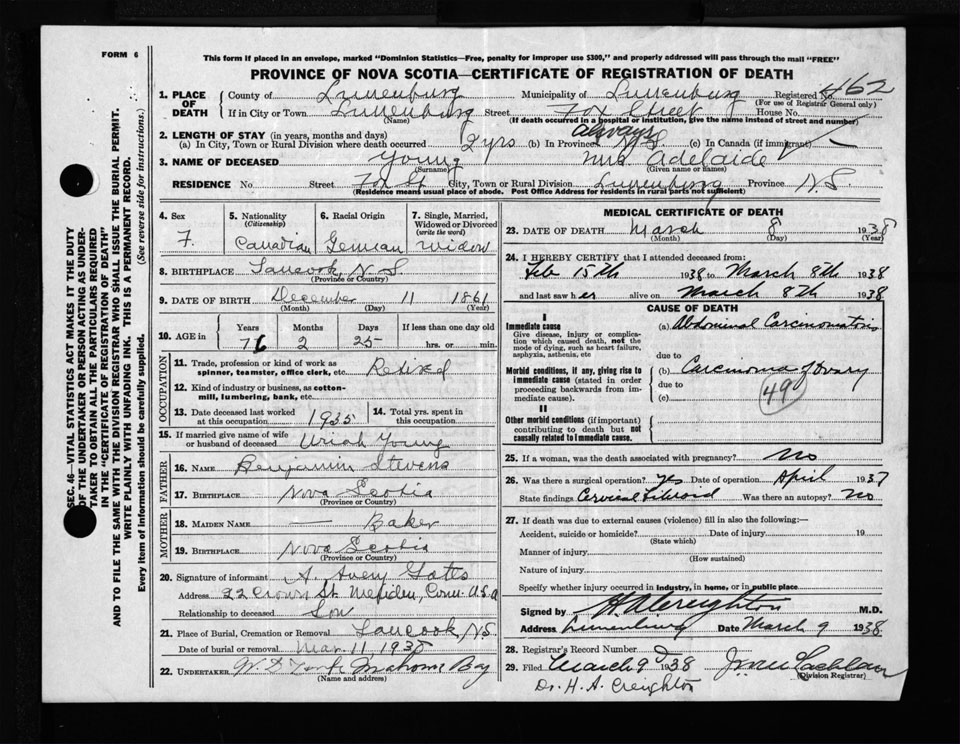 FORM 6
This form if placed in an envelope, marked "Dominion Statistics—Free, penalty for improper use $300," and properly addressed will pass through the mail "FREE"
PROVINCE OF NOVA SCOTIA—CERTIFICATE OF REGISTRATION OF DEATH
1. PLACE OF DEATH County of Lunenburg Municipality of Lunenburg Registered No. 462
(For use of Registrar General only)
If in City or Town Lunenburg Street Fox Street House No.
(Name) (If death occurred in a hospital or institution, give the name instead of street and number)
2. LENGTH OF STAY (in years, months and days) always
(a) In City, Town or Rural Division where death occurred 2 yrs (b) In Province N.S. (c) In Canada (if immigrant)
3. NAME OF DECEASED Young Mrs Adelaide
(Surname) (Given name or names)
RESIDENCE No. Street Fox St City, Town or Rural Division Lunenburg Province N.S.
(Residence means usual place of abode. Post Office Address for residents in rural parts not sufficient)
4. Sex F.
5. Nationality (Citizenship) Canadian
6. Racial Origin German
7. Single, Married, Widowed or Divorced (write the word) widow
8. BIRTHPLACE Tancook, N.S
(Province or Country)
9. DATE OF BIRTH December 11 1861
(Month) (Day) (Year)
10. AGE in Years 76 Months 2 Days 25 If less than one day old hrs. or min.
OCCUPATION
11. Trade, profession or kind of work as spinner, teamster, office clerk, etc. Retired
12. Kind of industry or business, as cotton-mill, lumbering, bank, etc.
13. Date deceased last worked at this occupation 1935 14. Total yrs. spent in this occupation
15. If married give name of wife or husband of deceased Uriah Young
FATHER
16. NAME Benjamin Stevens
17. BIRTHPLACE Nova Scotia
(Province or Country)
MOTHER
18. MAIDEN NAME — Baker
19. BIRTHPLACE Nova Scotia
(Province or Country)
20. Signature of informant A. Avery Gates
Address 22 Crown St. Meriden, Conn. U.S.A
Relationship to deceased Son
21. Place of Burial, Cremation or Removal Tancook, NS.
Date of burial or removal Mar. 11, 1938
22. UNDERTAKER Mahone Bay
(Name and address)
MEDICAL CERTIFICATE OF DEATH
23. DATE OF DEATH March 8 1938
(Month) (Day) (Year)
24. I HEREBY CERTIFY that I attended deceased from:
Feb 15th 1938 to March 8th 1938
and last saw her alive on March 8th 1938
CAUSE OF DEATH
I
Immediate cause
Give disease, injury or complication which caused death, not the mode of dying, such as heart failure, asphyxia, asthenia, etc
(a) Abdominal Carcinomatosis
due to
Morbid conditions, if any, giving rise to immediate cause (stated in order proceeding backwards from immediate cause).
(b) Carcinoma of Ovary
due to
(c)
49
II
Other morbid conditions (if important) contributing to death but not causally related to Immediate cause.
25. If a woman, was the death associated with pregnancy? No
26. Was there a surgical operation? Yes Date of operation April 1937
State findings Cervical Fibroid Was there an autopsy? No
27. If death was due to external causes (violence) fill in also the following:—
Accident, suicide or homicide? Date of injury 19
(State which)
Manner of injury
(How sustained)
Nature of injury
Specify whether injury occurred in industry, in home, or in public place
Signed by H A Creighton M.D.
Address Lunenburg Date March 9 1938
28. Registrar's Record Number
29. Filed March 9 1938
(Division Registrar)
Dr. H. A. Creighton
SEC. 46—VITAL STATISTICS ACT MAKES IT THE DUTY
OF THE UNDERTAKER OR PERSON ACTING AS UNDER-
TAKER TO OBTAIN ALL THE PARTICULARS REQUIRED
IN THE "CERTIFICATE OF REGISTRATION OF DEATH"
AND TO FILE THE SAME WITH THE DIVISION REGISTRAR WHO SHALL ISSUE THE BURIAL PERMIT.
WRITE PLAINLY WITH UNFADING INK. THIS IS A PERMANENT RECORD.
Every item of information should be carefully supplied. (See reverse side for instructions.)